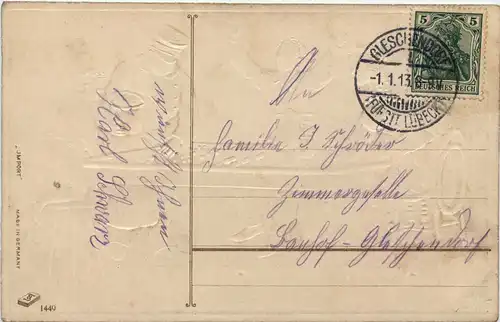 wünscht Ihnen
Karl Schwarz
An
Familie J. Schröder
Zimmergeselle
Bauhof-Gleschendorf
GLESCHENDORF
-1.1.13. 6-7N
(FÜRSTT. LÜBECK)
5 5
DEUTSCHES REICH
"IMPORT"
MADE IN GERMANY
1440